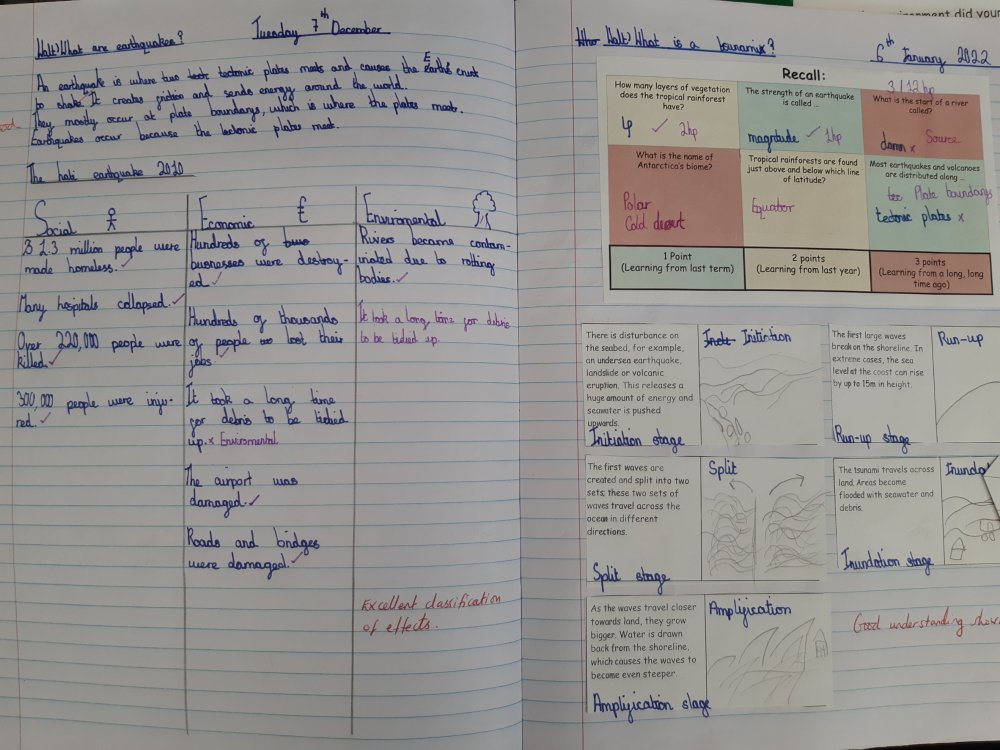 Walt) What are earthquakes?
Tuesday 7th December
An earthquake is where two tectonic plates meets and causes the Earth's crust
to shake. It creates friction and sends energy around the world.
They mostly occur at plate boundarys, which is where the plates meet.
Earthquakes occur because the tectonic plates meet.
The hati earthquake 2010
Social
1.3 million people were
made homeless.
Many hospitals collapsed.
Over 220,000 people were
killed.
300,000 people were inju-
red.
Economic £
Hundreds of
businesses were destroy-
ed.
Hundreds of thousands
of people lost their
jobs.
It took a long time
for debris to be tidied
up. x Enviromental
The airport was
damaged.
Roads and bridges
were damaged.
Enviromental
Rivers became contam-
inated due to rotting
bodies.
It took a long time for debris
to be tidied up.
Excellent classification
of effects.
Walt) What is a tsunami?
6th January 2022
Recall:
3/12hp
How many layers of vegetation
does the tropical rainforest
have?
4 ✓ 2hp
The strength of an earthquake
is called ...
magnitude ✓ 1hp
What is the start of a river
called?
damn x Source
What is the name of
Antarctica's biome?
Polar
Cold desert
Tropical rainforests are found
just above and below which line
of latitude?
Equator
Most earthquakes and volcanoes
are distributed along ...
Plate boundarys
tectonic plates x
1 Point
(Learning from last term)
2 points
(Learning from last year)
3 points
(Learning from a long, long
time ago)
There is disturbance on
the seabed, for example,
an undersea earthquake,
landslide or volcanic
eruption. This releases a
huge amount of energy and
seawater is pushed
upwards.
Initiation stage
Initiation
The first large waves
break on the shoreline. In
extreme cases, the sea
level at the coast can rise
by up to 15m in height.
Run-up stage
Run-up
The first waves are
created and split into two
sets; these two sets of
waves travel across the
ocean in different
directions.
Split stage
Split
The tsunami travels across
land. Areas become
flooded with seawater and
debris.
Inundation stage
Inunda
As the waves travel closer
towards land, they grow
bigger. Water is drawn
back from the shoreline,
which causes the waves to
become even steeper.
Amplification stage
Amplification
Good understanding show